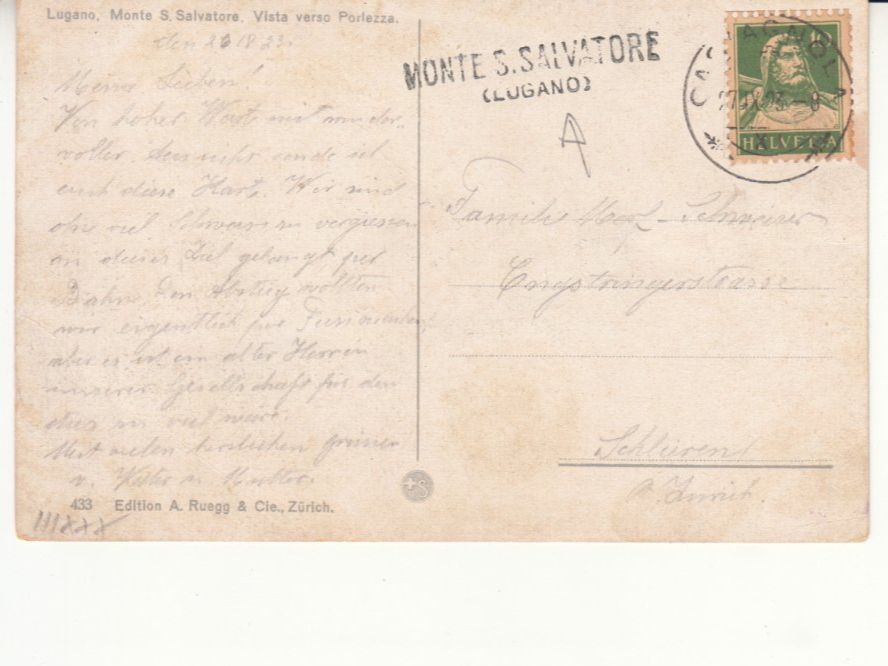 Lugano, Monte S. Salvatore, Vista verso Porlezza.
den 26
Meine Lieben!
Von hoher Wart mit wunder-
voller Aussicht sende ich
euch diese Karte. Wir sind
ohne viel Schweiss zu vergiessen
an dieses Ziel gelangt per
Bahn. Den Abstieg wollten
wir eigentlich per
aber es ist ein alter Herr in
unserer Gesellschaft für den
dies zu viel wäre.
Mit vielen herzlichen Grüssen
v. Vater u. Mutter.
433 Edition A. Ruegg & Cie., Zürich.
MONTE S. SALVATORE
(LUGANO)
CASTAGNOLA
10
HELVETIA
Familie
Engstringerstrasse
Schlieren
b. Zürich.